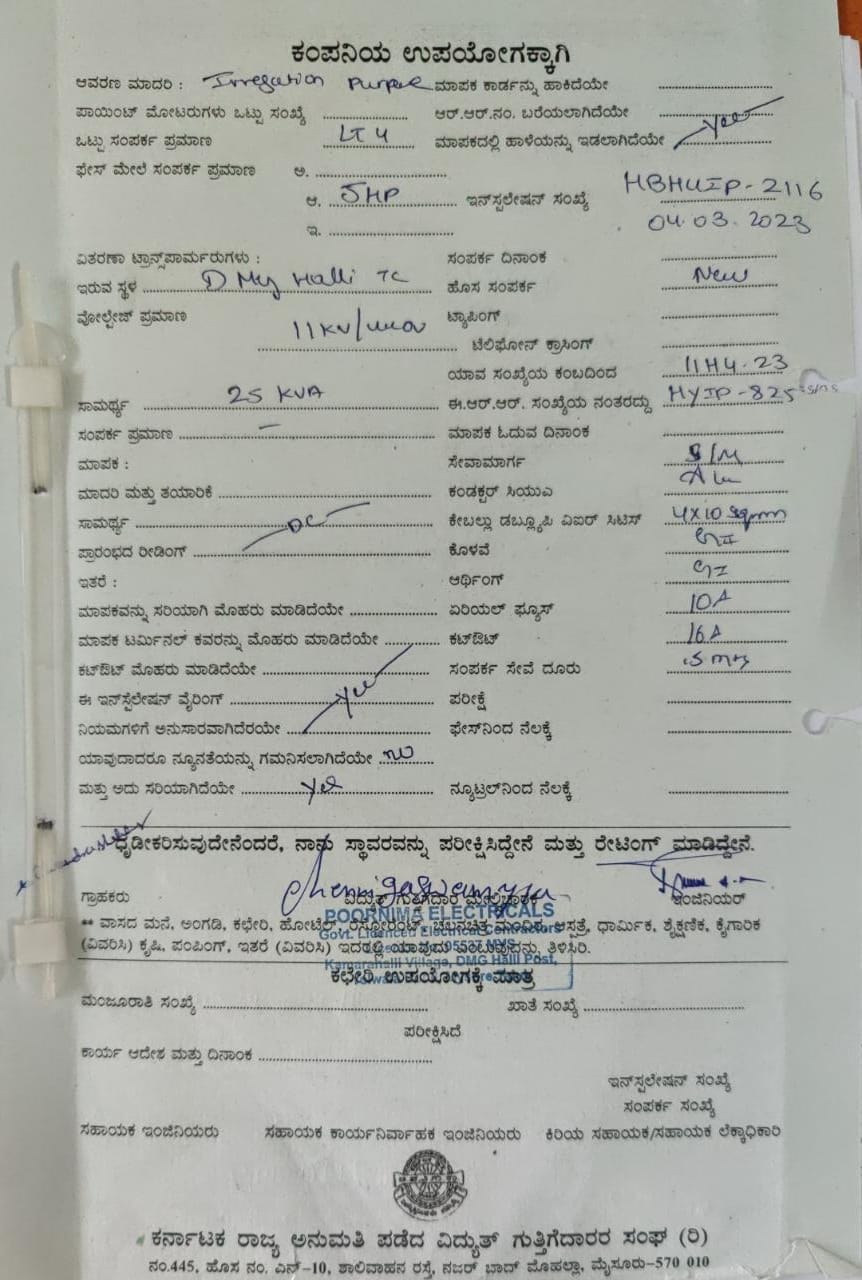 ಕಂಪನಿಯ ಉಪಯೋಗಕ್ಕಾಗಿ
ಆವರಣ ಮಾದರಿ : Irregation Purpose ಮಾಪಕ ಕಾರ್ಡನ್ನು ಹಾಕಿದೆಯೇ
ಪಾಯಿಂಟ್ ಮೋಟರುಗಳು ಒಟ್ಟು ಸಂಖ್ಯೆ ಆರ್.ಆರ್.ನಂ. ಬರೆಯಲಾಗಿದೆಯೇ
ಒಟ್ಟು ಸಂಪರ್ಕ ಪ್ರಮಾಣ LT 4 ಮಾಪಕದಲ್ಲಿ ಹಾಳೆಯನ್ನು ಇಡಲಾಗಿದೆಯೇ yes
ಫೇಸ್ ಮೇಲೆ ಸಂಪರ್ಕ ಪ್ರಮಾಣ ಅ.
ಆ. 5HP ಇನ್‌ಸ್ಪಲೇಷನ್ ಸಂಖ್ಯೆ HBHUIP-2116
ಇ. 04.03.2023
ವಿತರಣಾ ಟ್ರಾನ್ಸ್‌ಪಾರ್ಮರುಗಳು : ಸಂಪರ್ಕ ದಿನಾಂಕ
ಇರುವ ಸ್ಥಳ D My Halli TC ಹೊಸ ಸಂಪರ್ಕ New
ವೋಲ್ಟೇಜ್ ಪ್ರಮಾಣ 11KV/ ಟ್ಯಾಪಿಂಗ್
ಟೆಲಿಫೋನ್ ಕ್ರಾಸಿಂಗ್
ಯಾವ ಸಂಖ್ಯೆಯ ಕಂಬದಿಂದ 11H4-23
ಸಾಮರ್ಥ್ಯ 25 KVA ಈ.ಆರ್.ಆರ್. ಸಂಖ್ಯೆಯ ನಂತರದ್ದು HYIP-825
ಸಂಪರ್ಕ ಪ್ರಮಾಣ – ಮಾಪಕ ಓದುವ ದಿನಾಂಕ
ಮಾಪಕ : ಸೇವಾಮಾರ್ಗ S/M
ಮಾದರಿ ಮತ್ತು ತಯಾರಿಕೆ ಕಂಡಕ್ಟರ್ ಸಿಯುಎ Alu
ಸಾಮರ್ಥ್ಯ DC ಕೇಬಲ್ಲು ಡಬ್ಲ್ಯೂಪಿ ವಿಐರ್ ಸಿಟಿಸ್ 4X10 Sqmm
ಪ್ರಾರಂಭದ ರೀಡಿಂಗ್ ಕೊಳವೆ GI
ಇತರೆ : ಆರ್ಥಿಂಗ್ GI
ಮಾಪಕವನ್ನು ಸರಿಯಾಗಿ ಮೊಹರು ಮಾಡಿದೆಯೇ ಏರಿಯಲ್ ಫ್ಯೂಸ್ 10A
ಮಾಪಕ ಟರ್ಮಿನಲ್ ಕವರನ್ನು ಮೊಹರು ಮಾಡಿದೆಯೇ ಕಟ್‌ಔಟ್ 16A
ಕಟ್‌ಔಟ್ ಮೊಹರು ಮಾಡಿದೆಯೇ ಸಂಪರ್ಕ ಸೇವೆ ದೂರು
ಈ ಇನ್‌ಸ್ಪೆಲೇಷನ್ ವೈರಿಂಗ್ yes ಪರೀಕ್ಷೆ
ನಿಯಮಗಳಿಗೆ ಅನುಸಾರವಾಗಿದೆರಯೇ ಫೇಸ್‌ನಿಂದ ನೆಲಕ್ಕೆ
ಯಾವುದಾದರೂ ನ್ಯೂನತೆಯನ್ನು ಗಮನಿಸಲಾಗಿದೆಯೇ NO
ಮತ್ತು ಅದು ಸರಿಯಾಗಿದೆಯೇ yes ನ್ಯೂಟ್ರಲ್‌ನಿಂದ ನೆಲಕ್ಕೆ
ಧೃಡೀಕರಿಸುವುದೇನೆಂದರೆ, ನಾನು ಸ್ಥಾವರವನ್ನು ಪರೀಕ್ಷಿಸಿದ್ದೇನೆ ಮತ್ತು ರೇಟಿಂಗ್ ಮಾಡಿದ್ದೇನೆ.
ಗ್ರಾಹಕರು ವಿದ್ಯುತ್ ಗುತ್ತಿಗೆದಾರ ಮೇಲ್ವಿಚಾರಕ ಇಂಜಿನಿಯರ್
POORNIMA ELECTRICALS
Govt. Licenced Electrical Contractors
** ವಾಸದ ಮನೆ, ಅಂಗಡಿ, ಕಛೇರಿ, ಹೋಟೆಲ್, ರೆಸ್ಟೋರೆಂಟ್, ಚಲನಚಿತ್ರ ಮಂದಿರ, ಆಸ್ಪತ್ರೆ, ಧಾರ್ಮಿಕ, ಶೈಕ್ಷಣಿಕ, ಕೈಗಾರಿಕ
(ವಿವರಿಸಿ) ಕೃಷಿ, ಪಂಪಿಂಗ್, ಇತರೆ (ವಿವರಿಸಿ) ಇದರಲ್ಲಿ ಯಾವುದು ಎಂಬುವುದನ್ನು ತಿಳಿಸಿರಿ.
Village, DMG Halli Post,
ಕಛೇರಿ ಉಪಯೋಗಕ್ಕೆ ಮಾತ್ರ
ಮಂಜೂರಾತಿ ಸಂಖ್ಯೆ ಖಾತೆ ಸಂಖ್ಯೆ
ಪರೀಕ್ಷಿಸಿದೆ
ಕಾರ್ಯ ಆದೇಶ ಮತ್ತು ದಿನಾಂಕ
ಇನ್‌ಸ್ಪಲೇಷನ್ ಸಂಖ್ಯೆ
ಸಂಪರ್ಕ ಸಂಖ್ಯೆ
ಸಹಾಯಕ ಇಂಜಿನಿಯರು ಸಹಾಯಕ ಕಾರ್ಯನಿರ್ವಾಹಕ ಇಂಜಿನಿಯರು ಕಿರಿಯ ಸಹಾಯಕ/ಸಹಾಯಕ ಲೆಕ್ಕಾಧಿಕಾರಿ
ಕರ್ನಾಟಕ ರಾಜ್ಯ ಅನುಮತಿ ಪಡೆದ ವಿದ್ಯುತ್ ಗುತ್ತಿಗೆದಾರರ ಸಂಘ (ರಿ)
ನಂ.445, ಹೊಸ ನಂ. ಎನ್-10, ಶಾಲಿವಾಹನ ರಸ್ತೆ, ನಜರ್ ಬಾದ್ ಮೊಹಲ್ಲಾ, ಮೈಸೂರು-570 010